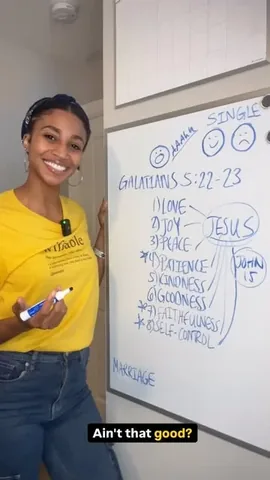 SINGLE
AAAHH
GALATIANS 5:22-23
1) LOVE
2) JOY
3) PEACE
*4) PATIENCE
5) KINDNESS
6) GOODNESS
*7) FAITHFULNESS
*8) SELF-CONTROL
JESUS
JOHN
15
MARRIAGE
Ain't that good?